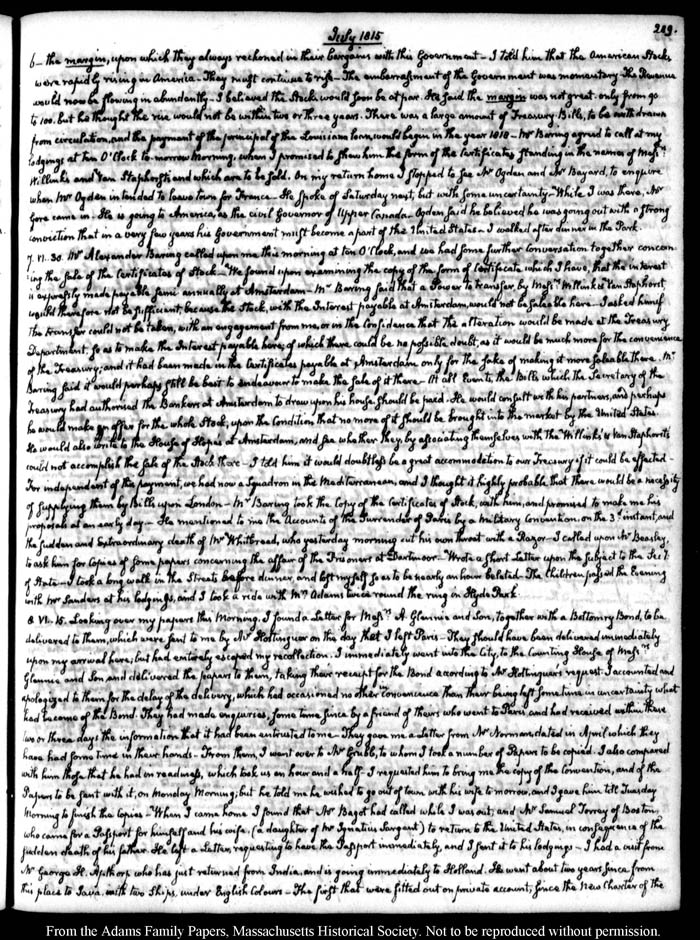 July 1815
209.
6_ the margin, upon which they always reckoned in their bargains with this Government_ I told him that the American Stocks
were rapidly rising in America_ They must continue to rise_ The embarrassment of the Government was momentary. The Revenue
would now be flowing in abundantly_ I believed the Stocks would soon be at par. He said the margin was not great. only from 90
to 100. but he thought the rise would not be within two or three years. There was a large amount of Treasury-Bills, to be withdrawn
from circulation, and the payment of the principal of the Louisiana loan, would begin in the year 1818_ Mr Baring agreed to call at my
lodgings at ten O'Clock to-morrow Morning, when I promised to shew him the form of the Certificates standing in the names of Messrs
Willinks and Van Staphorsts and which are to be sold. On my return home I stopped to see Mr Ogden and Mr Bayard, to enquire
when Mr Ogden intended to leave town for France_ He spoke of Saturday next, but with some uncertainty_ While I was there, Mr
Gore came in. He is going to America, as the civil Governor of Upper Canada. Ogden said he believed he was going out with a strong
conviction that in a very few years his Government must become a part of the United States_ I walked after dinner in the Park.
7. VI. 30. Mr Alexander Baring called upon me this morning at ten O'Clock, and we had some further conversation together concern-
ing the sale of the Certificates of Stock_ We found upon examining the copy of the form of Certificate which I have, that the interest
is expressly made payable semi annually at Amsterdam_ Mr Baring said that a Power to transfer, by Messrs Willinks & Van Staphorst,
would therefore not be sufficient, because the Stock, with the Interest payable at Amsterdam, would not be saleable here_ I asked him if
the transfer could not be taken, with an engagement from me, or in the Confidence that the alteration would be made at the Treasury
Department, so as to make the Interest payable here; of which there could be no possible doubt, as it would be much more for the convenience
of the Treasury; and it had been made in the Certificates payable at Amsterdam only for the sake of making it more saleable there. Mr
Baring said it would perhaps still be best to endeavour to make the sale of it there_ At all Events, the Bills which the Secretary of the
Treasury had authorised the Bankers at Amsterdam to draw upon his house should be paid. He would consult with his partners, and perhaps
he would make an offer for the whole Stock, upon the Condition that no more of it should be brought into the market by the United States.
He would also write to the House of Hopes at Amsterdam, and see whether they, by associating themselves with the Willinks & Van Staphorsts
could not accomplish the sale of the Stock there_ I told him it would doubtless be a great accommodation to our Treasury if it could be effected_
For independent of the payment, we had now a Squadron in the Mediterranean, and I thought it highly probable that there would be a necessity
of supplying them by Bills upon London_ Mr Baring took the Copy of the Certificates of Stock, with him, and promised to make me his
proposals at an early day_ He mentioned to me the Accounts of the Surrender of Paris by a Military Convention, on the 3d instant, and
the sudden and extraordinary death of Mr Whitbread, who yesterday morning cut his own throat with a Razor_ I called upon Mr Beasley,
to ask him for Copies of some papers concerning the affair of the Prisoners at Dartmoor_ Wrote a short Letter upon the subject to the Secy
of State_ I took a long walk in the Streets before dinner, and lost myself so as to be nearly an hour belated_ The Children passed the Evening
with Mr Sanders at his lodgings, and I took a ride with Mrs Adams twice round the ring in Hyde Park.
8. VI. 15. Looking over my papers this Morning, I found a Letter for Messrs A. Glennie and Son, together with a Bottomry Bond, to be
delivered to them, which were sent to me by Mr Hottinguer on the day that I left Paris_ They should have been delivered immediately
upon my arrival here, but had entirely escaped my recollection. I immediately went into the City, to the Counting House of Messrs
Glennie and Son and delivered the papers to them, taking their receipt for the Bond according to Mr Hottinguer's request. I accounted and
apologized to them for the delay of the delivery, which had occasioned no other inconvenience than their being left some time in uncertainty what
had become of the Bond. They had made enquiries, some time since by a friend of theirs who went to Paris, and had received within these
two or three days the information that it had been entrusted to me_ They gave me a Letter from Mr Norman, dated in April which they
have had some time in their hands_ From them, I went over to Mr Grubb, to whom I took a number of Papers to be copied. I also compared
with him those that he had in readiness, which took us an hour and a half_ I requested him to bring me the copy of the Convention, and of the
Papers to be sent with it, on Monday Morning; but he told me he wished to go out of town with his wife to morrow, and I gave him till Tuesday
Morning to finish the copies_ When I came home I found that Mr Bagot had called while I was out; and Mr Samuel Torrey of Boston,
who came for a Passport for himself and his wife, (a daughter of Mr Ignatius Sargent) to return to the United States, in consequence of the
sudden death of his father. He left a Letter, requesting to have the Passport immediately, and I sent it to his lodgings_ I had a visit from
Mr George H. Apthorp who has just returned from India, and is going immediately to Holland. He went about two years since from
this place to Java, with two Ships, under English Colours_ The first that were fitted out on private account, since the New Charter of the
From the Adams Family Papers, Massachusetts Historical Society. Not to be reproduced without permission.